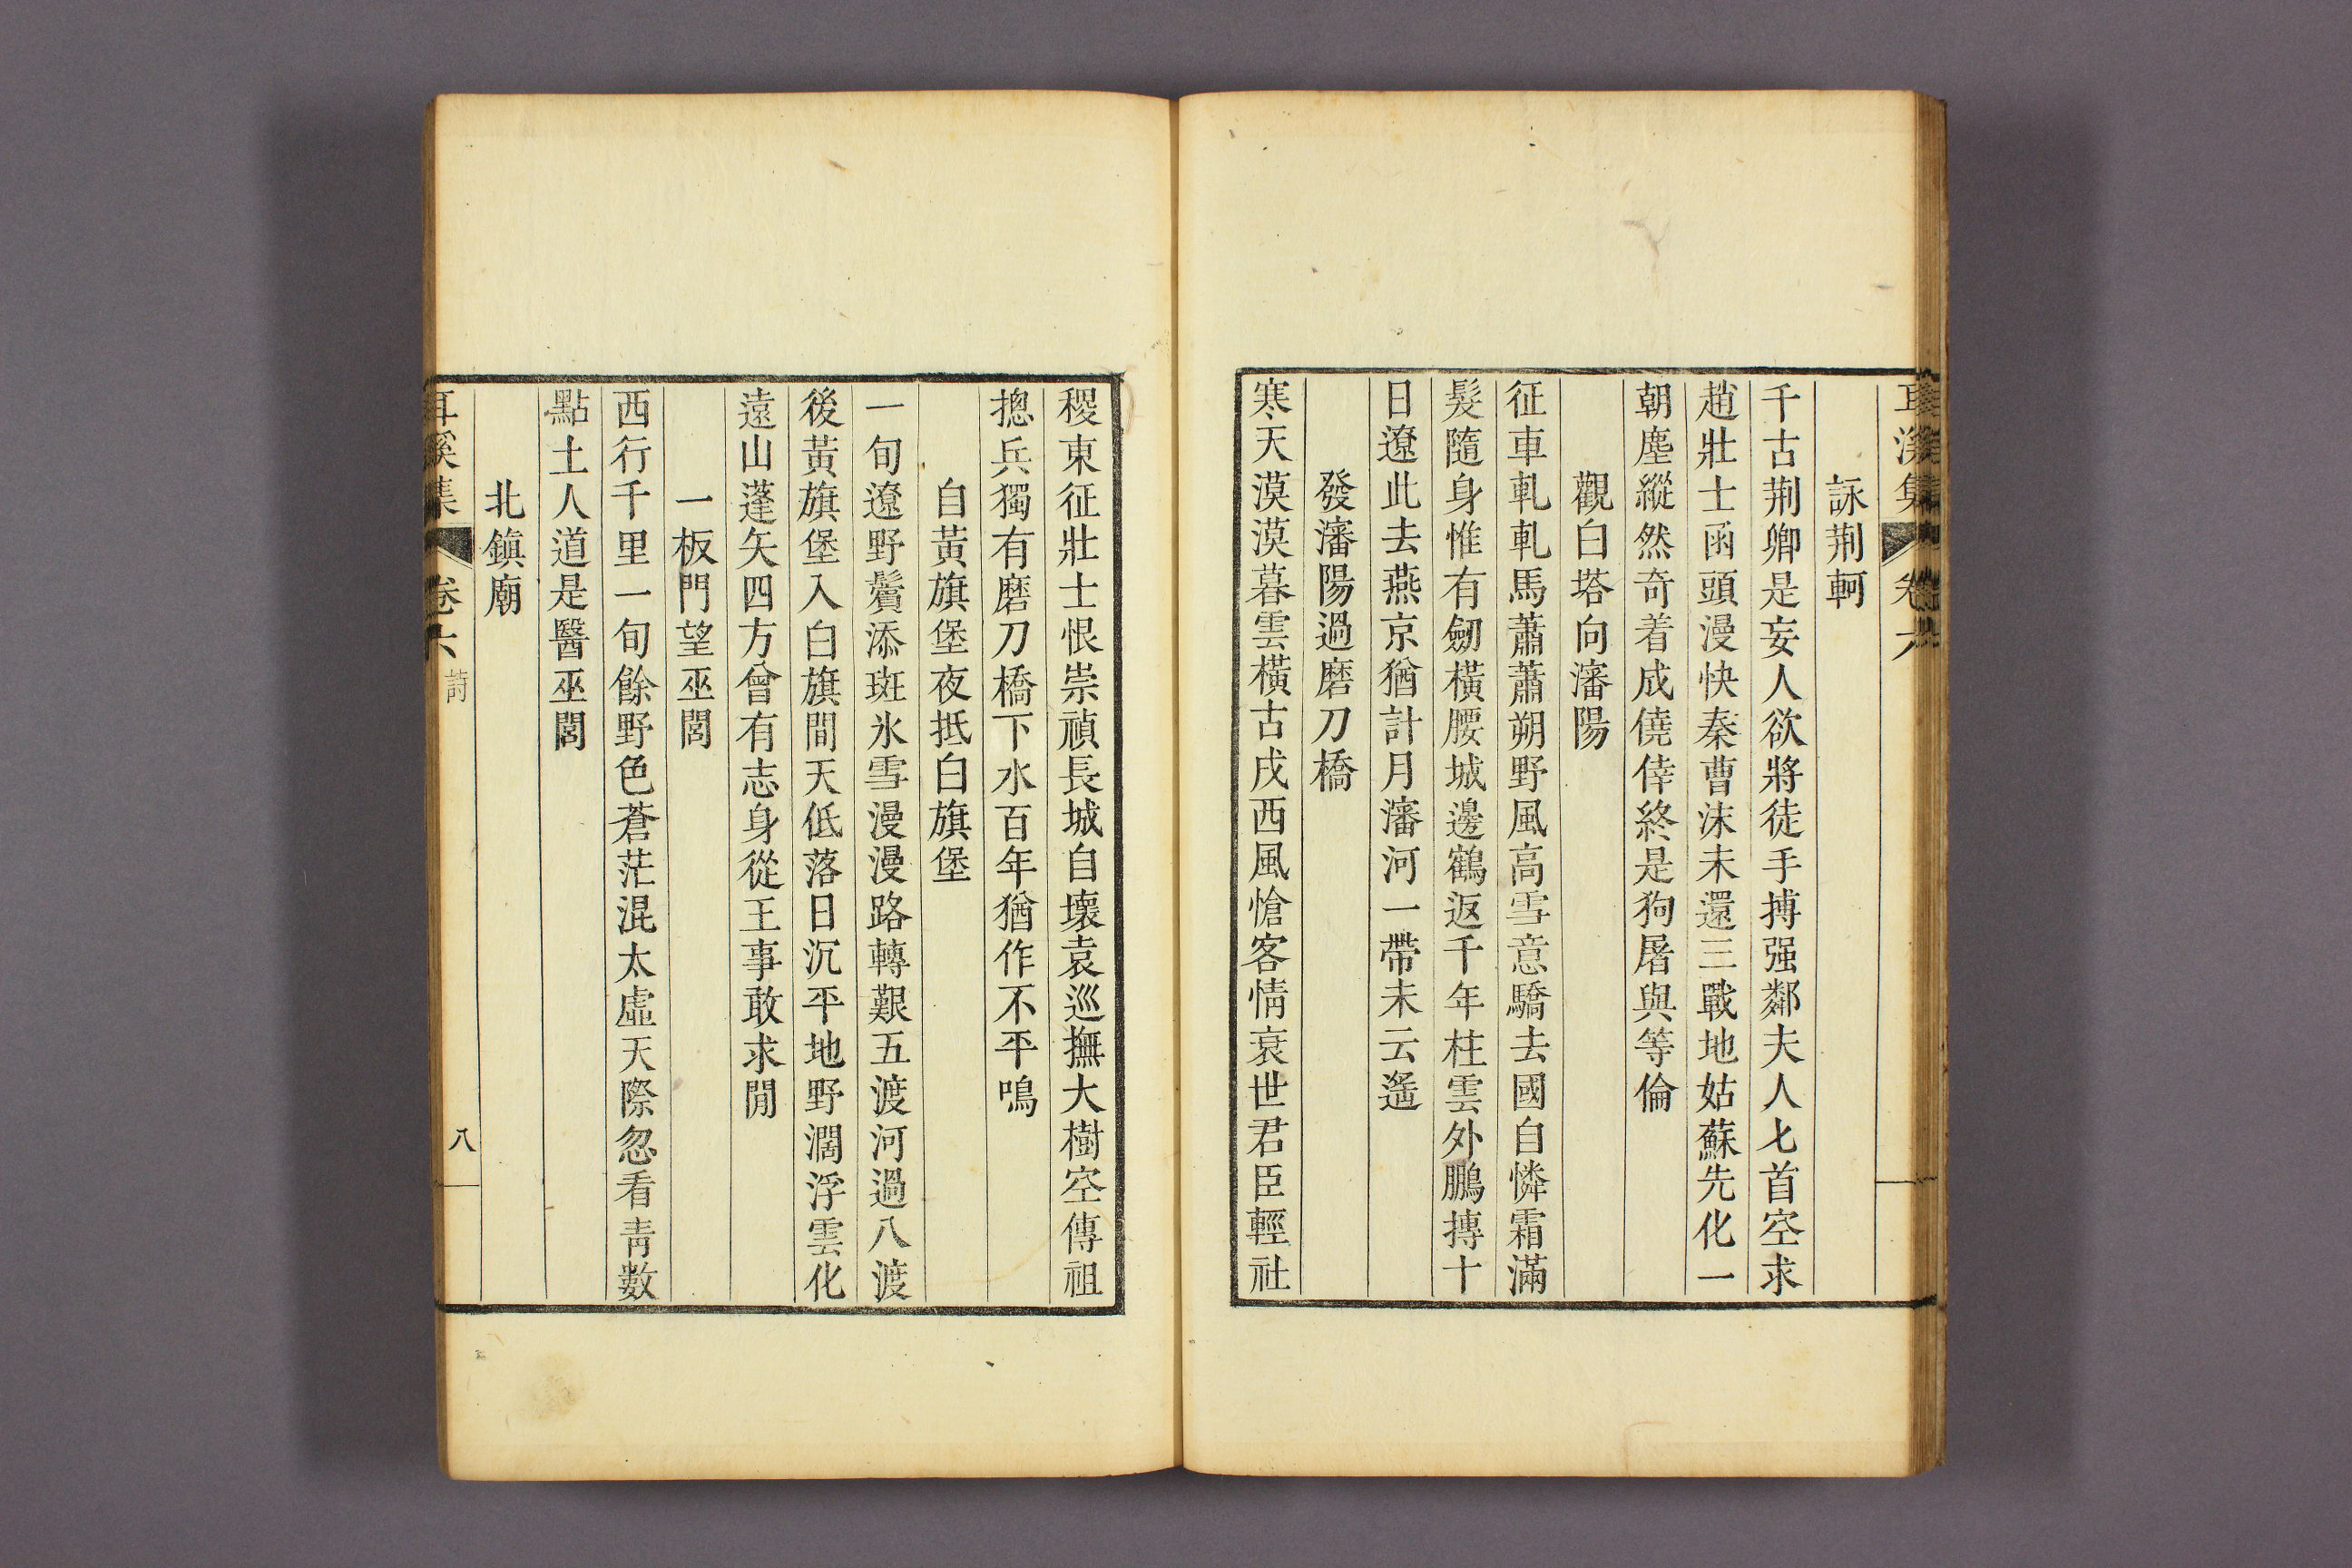 耳溪集 卷六
詠荆軻
千古荆卿是妄人欲將徒手搏强鄰夫人匕首空求
趙壯士函頭漫快秦曹沫未還三戰地姑蘇先化一
朝塵縱然奇着成僥倖終是狗屠與等倫
觀白塔向瀋陽
征車軋軋馬蕭蕭朔野風高雪意驕去國自憐霜滿
髮隨身惟有劒橫腰城邊鶴返千年柱雲外鵬摶十
日遼此去燕京猶計月瀋河一帶未云遙
發瀋陽過磨刀橋
寒天漠漠暮雲橫古戍西風愴客情衰世君臣輕社
稷東征壯士恨崇禎長城自壞袁巡撫大樹空傳祖
摠兵獨有磨刀橋下水百年猶作不平鳴
自黃旗堡夜抵白旗堡
一旬遼野鬢添斑氷雪漫漫路轉艱五渡河過八渡
後黃旗堡入白旗間天低落日沉平地野濶浮雲化
遠山蓬矢四方曾有志身從王事敢求閒
一板門望巫閭
西行千里一旬餘野色蒼茫混太虛天際忽看靑數
點土人道是醫巫閭
北鎭廟
耳溪集 卷六 詩 八